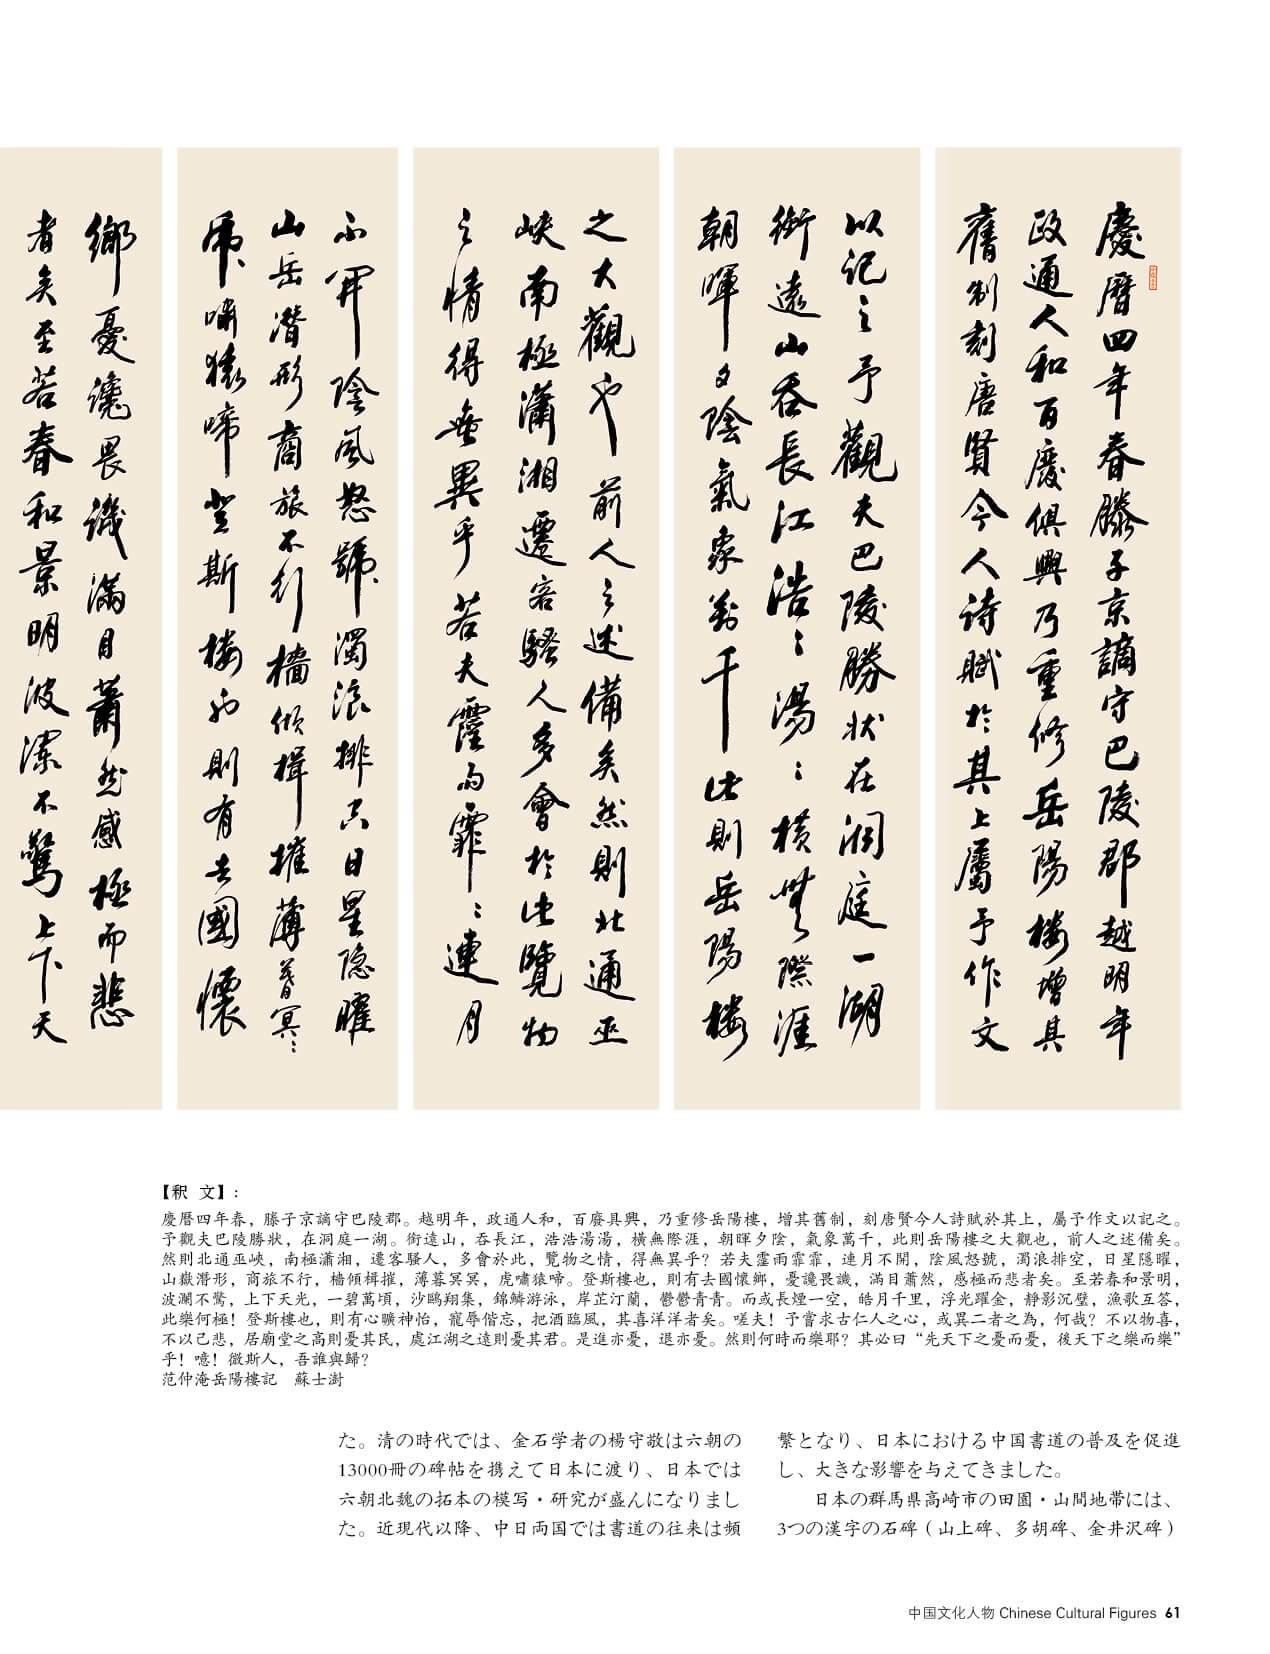 慶曆四年春滕子京謫守巴陵郡越明年
政通人和百廢俱興乃重修岳陽樓增其
舊制刻唐賢今人詩賦於其上屬予作文
以記之予觀夫巴陵勝狀在洞庭一湖
銜遠山吞長江浩〻湯〻橫無際涯
朝暉夕陰氣象萬千此則岳陽樓
之大觀也前人之述備矣然則北通巫
峽南極瀟湘遷客騷人多會於此覽物
之情得無異乎若夫霪雨霏〻連月
不開陰風怒號濁浪排空日星隱曜
山岳潛形商旅不行檣傾楫摧薄暮冥〻
虎嘯猿啼登斯樓也則有去國懷
鄉憂讒畏譏滿目蕭然感極而悲
者矣至若春和景明波瀾不驚上下天
【釈 文】:
慶曆四年春，滕子京謫守巴陵郡。越明年，政通人和，百廢具興，乃重修岳陽樓，增其舊制，刻唐賢今人詩賦於其上，屬予作文以記之。
予觀夫巴陵勝狀，在洞庭一湖。銜遠山，吞長江，浩浩湯湯，橫無際涯，朝暉夕陰，氣象萬千，此則岳陽樓之大觀也，前人之述備矣。
然則北通巫峽，南極瀟湘，遷客騷人，多會於此，覽物之情，得無異乎？若夫霪雨霏霏，連月不開，陰風怒號，濁浪排空，日星隱曜，
山嶽潛形，商旅不行，檣傾楫摧，薄暮冥冥，虎嘯猿啼。登斯樓也，則有去國懷鄉，憂讒畏譏，滿目蕭然，感極而悲者矣。至若春和景明，
波瀾不驚，上下天光，一碧萬頃，沙鷗翔集，錦鱗游泳，岸芷汀蘭，鬱鬱青青。而或長煙一空，皓月千里，浮光躍金，靜影沉璧，漁歌互答，
此樂何極！登斯樓也，則有心曠神怡，寵辱偕忘，把酒臨風，其喜洋洋者矣。嗟夫！予嘗求古仁人之心，或異二者之為，何哉？不以物喜，
不以己悲，居廟堂之高則憂其民，處江湖之遠則憂其君。是進亦憂，退亦憂。然則何時而樂耶？其必曰“先天下之憂而憂，後天下之樂而樂”
乎！噫！微斯人，吾誰與歸？
范仲淹岳陽樓記　蘇士澍
た。清の時代では、金石学者の楊守敬は六朝の
13000冊の碑帖を携えて日本に渡り、日本では
六朝北魏の拓本の模写・研究が盛んになりまし
た。近現代以降、中日両国では書道の往来は頻
繁となり、日本における中国書道の普及を促進
し、大きな影響を与えてきました。
日本の群馬県高崎市の田園・山間地帯には、
3つの漢字の石碑（山上碑、多胡碑、金井沢碑）
中国文化人物 Chinese Cultural Figures 61